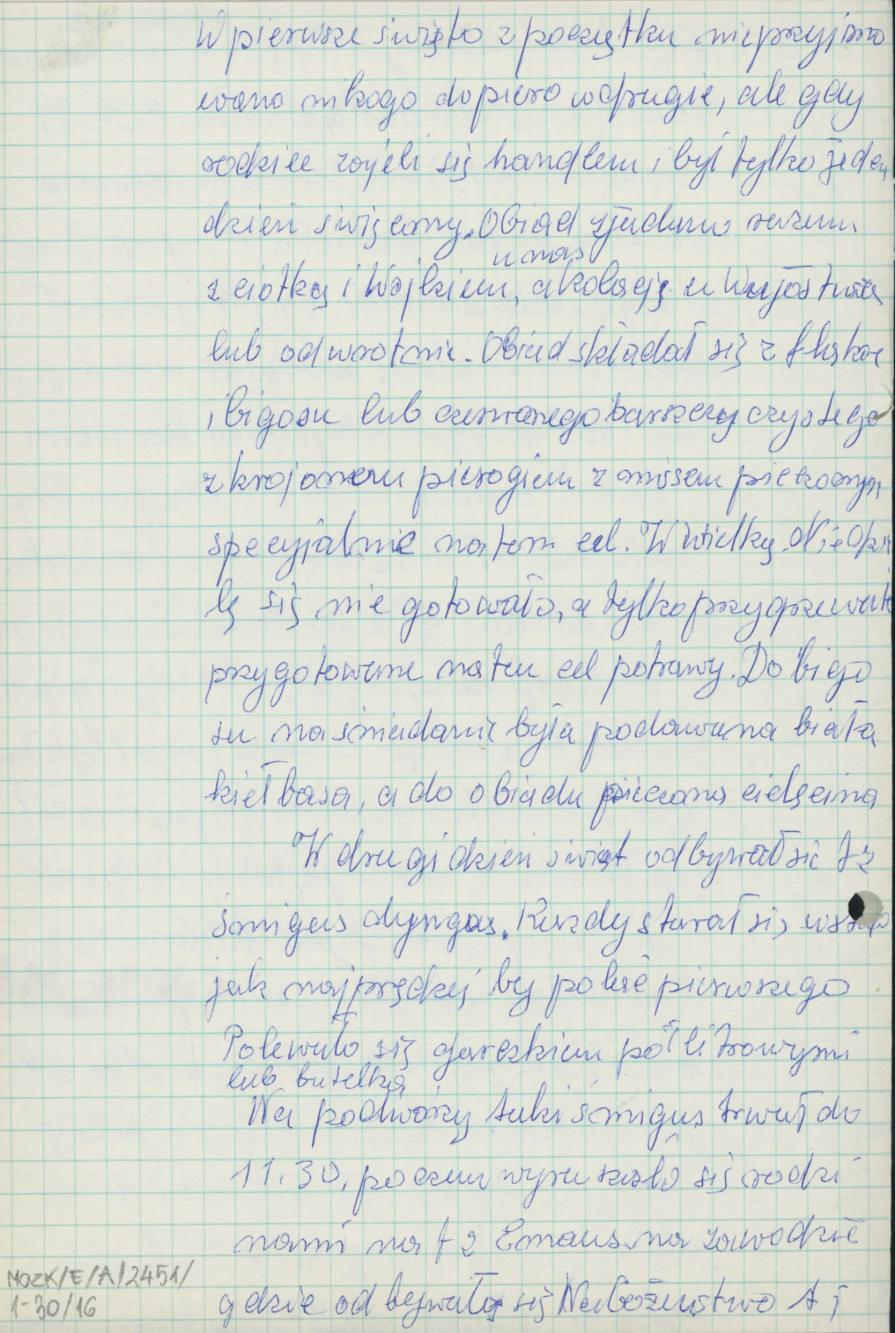 W pierwsze święto z początku nie przyjmo
wano nikogo dopiero w drugie, ale gdy
rodzice zajęli się handlem i był tylko jeden
dzień święcony. Obiad zjadano razem
u nas
z ciotką i Wujkiem, a kolację u Wujostwa
lub odwrotnie. Obiad składał się z flaków
i bigosu lub czerwonego barszczu czystego
z krojonem pierogiem z mięsem pieczonym
specyjalnie na tem cel. W wielką Niedzie
lę się nie gotowało, a tylko przygrzewało
przygotowane na ten cel potrawy. Do bigo
su na śniadanie była podawana biała
kiełbasa, a do obiadu pieczona cielęcina
W drugi dzień świąt odbywał się tz
śmigus dyngus. Każdy starał się wstać
jak najprędzej by polać pierwszego
Polewało się garczkiem półlitrowymi
lub butelką
Na podwórzu taki śmigus trwał do
11.30, poczem wyruszało się rodzi
nami na tz Emaus na zawodzie
gdzie odbywało się Nabożeństwo i
MOZK/E/A/2451/
1-30/16